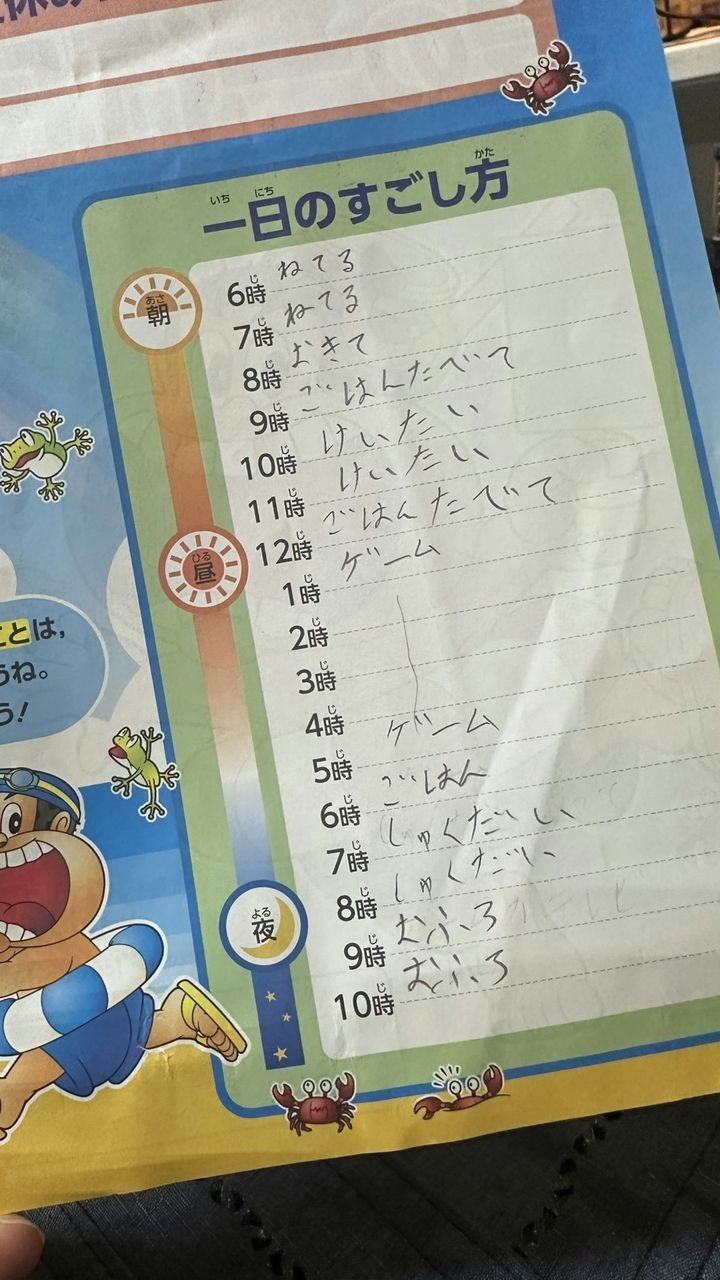 一日のすごし方
いち にち かた
朝
あさ
6時 ねてる
7時 ねてる
8時 おきて
9時 ごはんたべて
10時 けいたい
11時 けいたい
12時 ごはんたべて
昼
ひる
1時 ゲーム
2時
3時
4時
5時 ゲーム
6時 ごはん
7時 しゅくだい
8時 しゅくだい
夜
よる
9時 むふろ
10時 むふろ
ことは、
うね。
う!